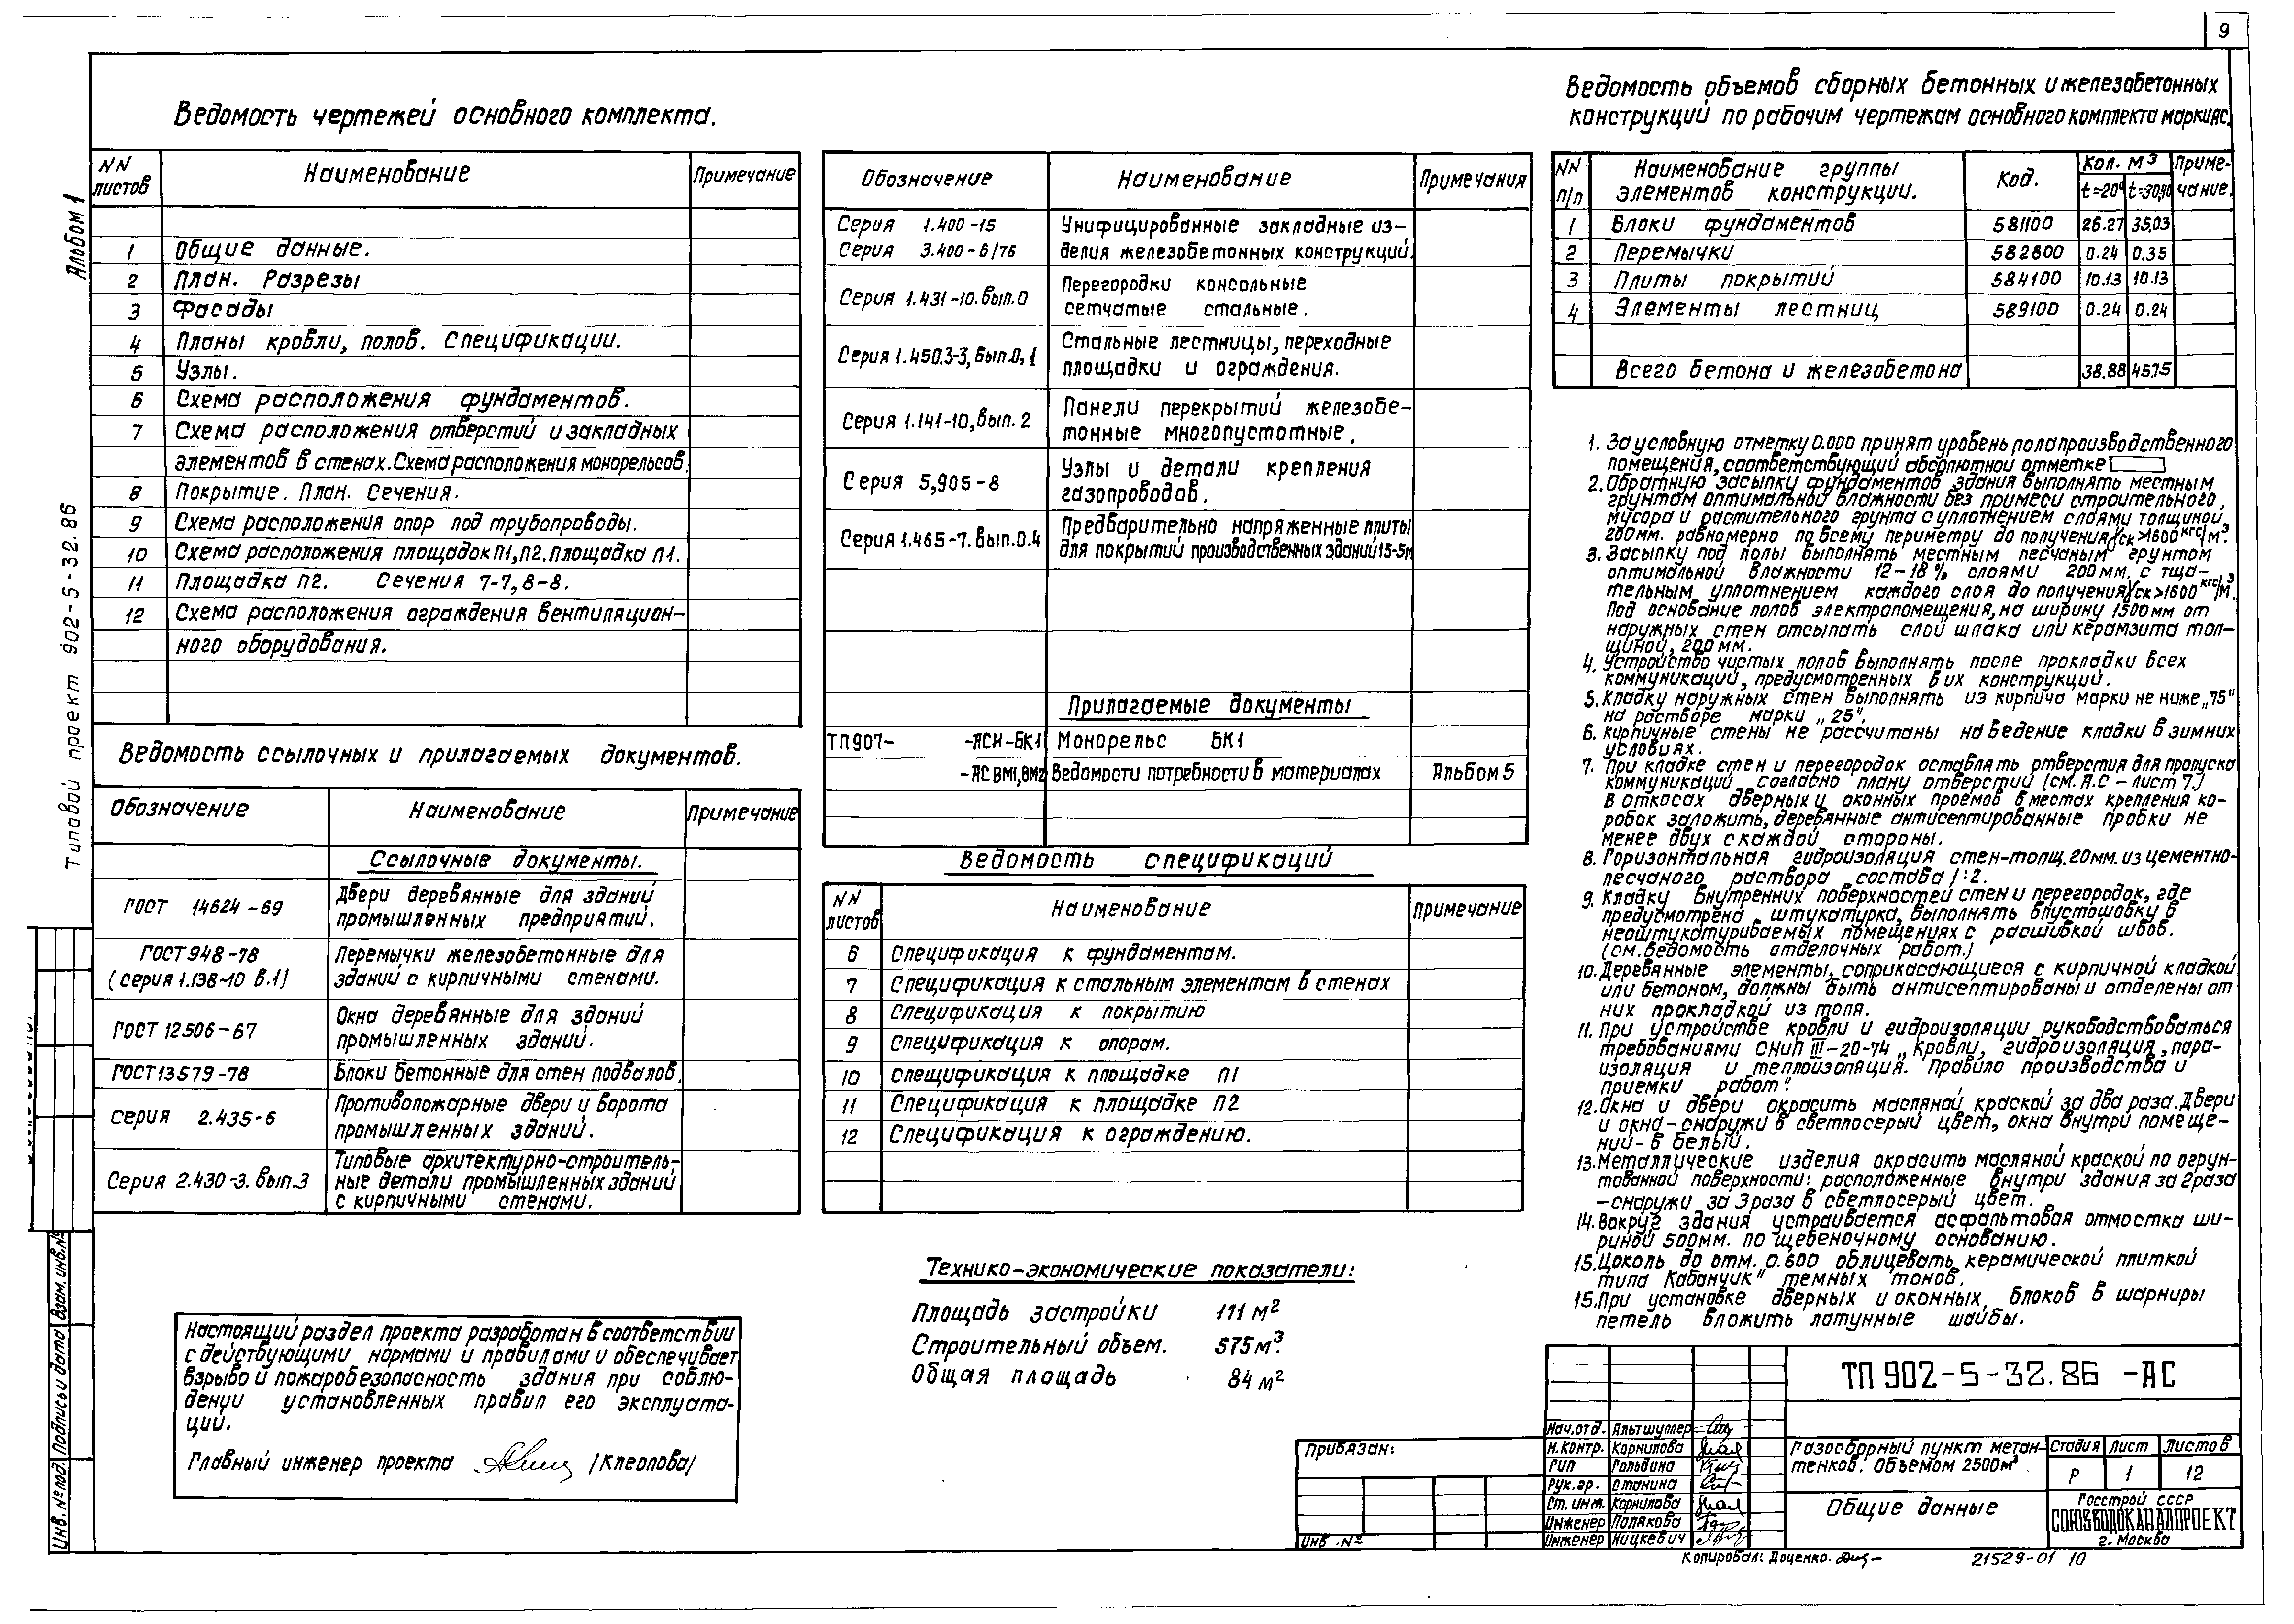 9
Альбом 1
Типовой проект 902-5-32.86
Взам. инв.№
Подпись и дата
Инв.№ под.
Ведомость чертежей основного комплекта.
NN листов
Наименование
Примечание
1 Общие данные.
2 План. Разрезы
3 Фасады
4 Планы кровли, полов. Спецификации.
5 Узлы.
6 Схема расположения фундаментов.
7 Схема расположения отверстий и закладных
элементов в стенах. Схема расположения монорельсов.
8 Покрытие. План. Сечения.
9 Схема расположения опор под трубопроводы.
10 Схема расположения площадок П1, П2. Площадка П1.
11 Площадка П2. Сечения 7-7, 8-8.
12 Схема расположения ограждения вентиляцион-
ного оборудования.
Ведомость ссылочных и прилагаемых документов.
Обозначение
Наименование
Примечание
Ссылочные документы.
ГОСТ 14624-69
Двери деревянные для зданий
промышленных предприятий.
ГОСТ 948-78
(серия 1.138-10 в.1)
Перемычки железобетонные для
зданий с кирпичными стенами.
ГОСТ 12506-67
Окна деревянные для зданий
промышленных зданий.
ГОСТ 13579-78
Блоки бетонные для стен подвалов.
серия 2.435-6
Противопожарные двери и ворота
промышленных зданий.
Серия 2.430-3. вып.3
Типовые архитектурно-строитель-
ные детали промышленных зданий
с кирпичными стенами.
Настоящий раздел проекта разработан в соответствии
с действующими нормами и правилами и обеспечивает
взрыво и пожаробезопасность здания при соблю-
дении установленных правил его эксплуата-
ции.
Главный инженер проекта /Клеопова/
Обозначение
Наименование
Примечания
Серия 1.400-15
Серия 3.400-6/76
Унифицированные закладные из-
делия железобетонных конструкций.
Серия 1.431-10. вып.0
Перегородки консольные
сетчатые стальные.
Серия 1.450.3-3, вып.0,1
Стальные лестницы, переходные
площадки и ограждения.
Серия 1.141-10, вып. 2
Панели перекрытий железобе-
тонные многопустотные.
Серия 5.905-8
Узлы и детали крепления
газопроводов.
Серия 1.465-7. вып.0.4
Предварительно напряженные плиты
для покрытий производственных зданий 15-5м
Прилагаемые документы
ТП 907- -АСИ-БК1 Монорельс БК1
-АС ВМ1, ВМ2 Ведомости потребности в материалах Альбом 5
Ведомость спецификаций
NN листов
Наименование
Примечание
6 Спецификация к фундаментам.
7 Спецификация к стальным элементам в стенах
8 Спецификация к покрытию
9 Спецификация к опорам.
10 Спецификация к площадке П1
11 Спецификация к площадке П2
12 Спецификация к ограждению.
Технико-экономические показатели:
Площадь застройки 111 м²
Строительный объем. 575 м³.
Общая площадь 84 м²
Ведомость объемов сборных бетонных и железобетонных
конструкций по рабочим чертежам основного комплекта марки АС.
NN п/п
Наименование группы
элементов конструкции.
Код.
Кол. м³
t=20° t=30,40
Приме-
чание.
1 Блоки фундаментов 581100 26.27 35,03
2 Перемычки 582800 0.24 0.35
3 Плиты покрытий 584100 10.13 10.13
4 Элементы лестниц 589100 0.24 0.24
Всего бетона и железобетона 38.88 45.75
1. За условную отметку 0.000 принят уровень пола производственного
помещения, соответствующий абсолютной отметке
2. Обратную засыпку фундаментов здания выполнять местным
грунтом оптимальной влажности без примеси строительного
мусора и растительного грунта с уплотнением слоями толщиной
200мм. равномерно по всему периметру до получения γск>1600 кгс/м³.
3. Засыпку под полы выполнять местным песчаным грунтом
оптимальной влажности 12-18% слоями 200мм. с тща-
тельным уплотнением каждого слоя до получения γск>1600 кгс/м³.
Под основание полов электропомещения, на ширину 1500мм от
наружных стен отсыпать слой шлака или керамзита тол-
щиной, 200мм.
4. Устройство чистых полов выполнять после прокладки всех
коммуникаций, предусмотренных в их конструкций.
5. Кладку наружных стен выполнять из кирпича марки не ниже „75"
на растворе марки „25".
6. Кирпичные стены не рассчитаны на ведение кладки в зимних
условиях.
7. При кладке стен и перегородок оставлять отверстия для пропуска
коммуникаций согласно плану отверстий (см. АС-лист 7.)
В откосах дверных и оконных проемов в местах крепления ко-
робок заложить, деревянные антисептированные пробки не
менее двух с каждой стороны.
8. Горизонтальная гидроизоляция стен-толщ. 20мм. из цементно-
песчаного раствора состава 1:2.
9. Кладку внутренних поверхностей стен и перегородок, где
предусмотрена штукатурка, выполнять впустошовку в
неоштукатуриваемых помещениях с расшивкой швов.
(см. ведомость отделочных работ.)
10. Деревянные элементы, соприкасающиеся с кирпичной кладкой
или бетоном, должны быть антисептированы и отделены от
них прокладкой из толя.
11. При устройстве кровли и гидроизоляции руководствоваться
требованиями СНиП III-20-74 „Кровли, гидроизоляция, паро-
изоляция и теплоизоляция. Правила производства и
приемки работ".
12. Окна и двери окрасить масляной краской за два раза. Двери
и окна-снаружи в светлосерый цвет, окна внутри помеще-
ний-в белый.
13. Металлические изделия окрасить масляной краской по огрун-
тованной поверхности: расположенные внутри здания за 2 раза
-снаружи за 3 раза в светлосерый цвет.
14. Вокруг здания устраивается асфальтовая отмостка ши-
риной 500мм. по щебеночному основанию.
15. Цоколь до отм. 0.600 облицевать керамической плиткой
типа Кабанчик" темных тонов.
15. При установке дверных и оконных блоков в шарниры
петель вложить латунные шайбы.
Привязан:
Инв. №
Нач.отд. Альтшуллер
Н.контр. Корнилова
ГИП Гольдина
Рук.гр. Станина
Ст. инж. Корнилова
Инженер Полякова
Инженер Ницкевич
ТП 902-5-32.86 -АС
Газосборный пункт метан-
тенков. Объемом 2500м³
Стадия Лист Листов
Р 1 12
Общие данные
Госстрой СССР
СОЮЗВОДОКАНАЛПРОЕКТ
г. Москва
Копировал: Доценко.
21529-01 10